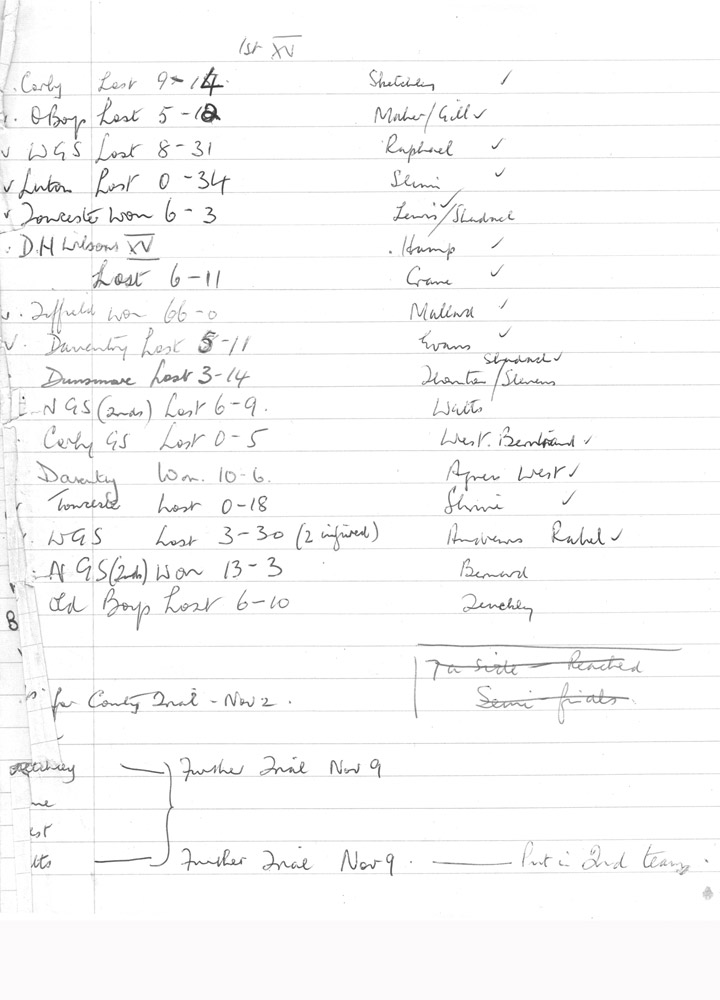 1st XV
Corby Lost 9-14 Sketchley ✓
OBoys Lost 5-12 Maher/Gill ✓
✓ WGS Lost 8-31 Raphael ✓
✓ Luton Lost 0-34 Slimi ✓
✓ Towcester Won 6-3 Lewis/Shadnel ✓
D.H Wilsons XV Hump ✓
Lost 6-11 Crane ✓
Tiffield won 66-0 Mallard ✓
✓ Daventry Lost 5-11 Evans ✓
Dunsmore Lost 3-14 /Stevens ✓
NGS (2nds) Lost 6-9. Watts
Corby GS Lost 0-5 West. ✓
Daventry Won. 10-6. Agnew West ✓
Towcester Lost 0-18 ✓
WGS Lost 3-30 (2 injured) Andrews ✓
NGS (2nds) Won 13-3 Bernard
Old Boys Lost 6-10
7 a side - Reached
Semi-finals.
for County Trial - Nov 2.
Further Trial Nov 9
ne
est
lts Further Trial Nov 9. Put in 2nd team.